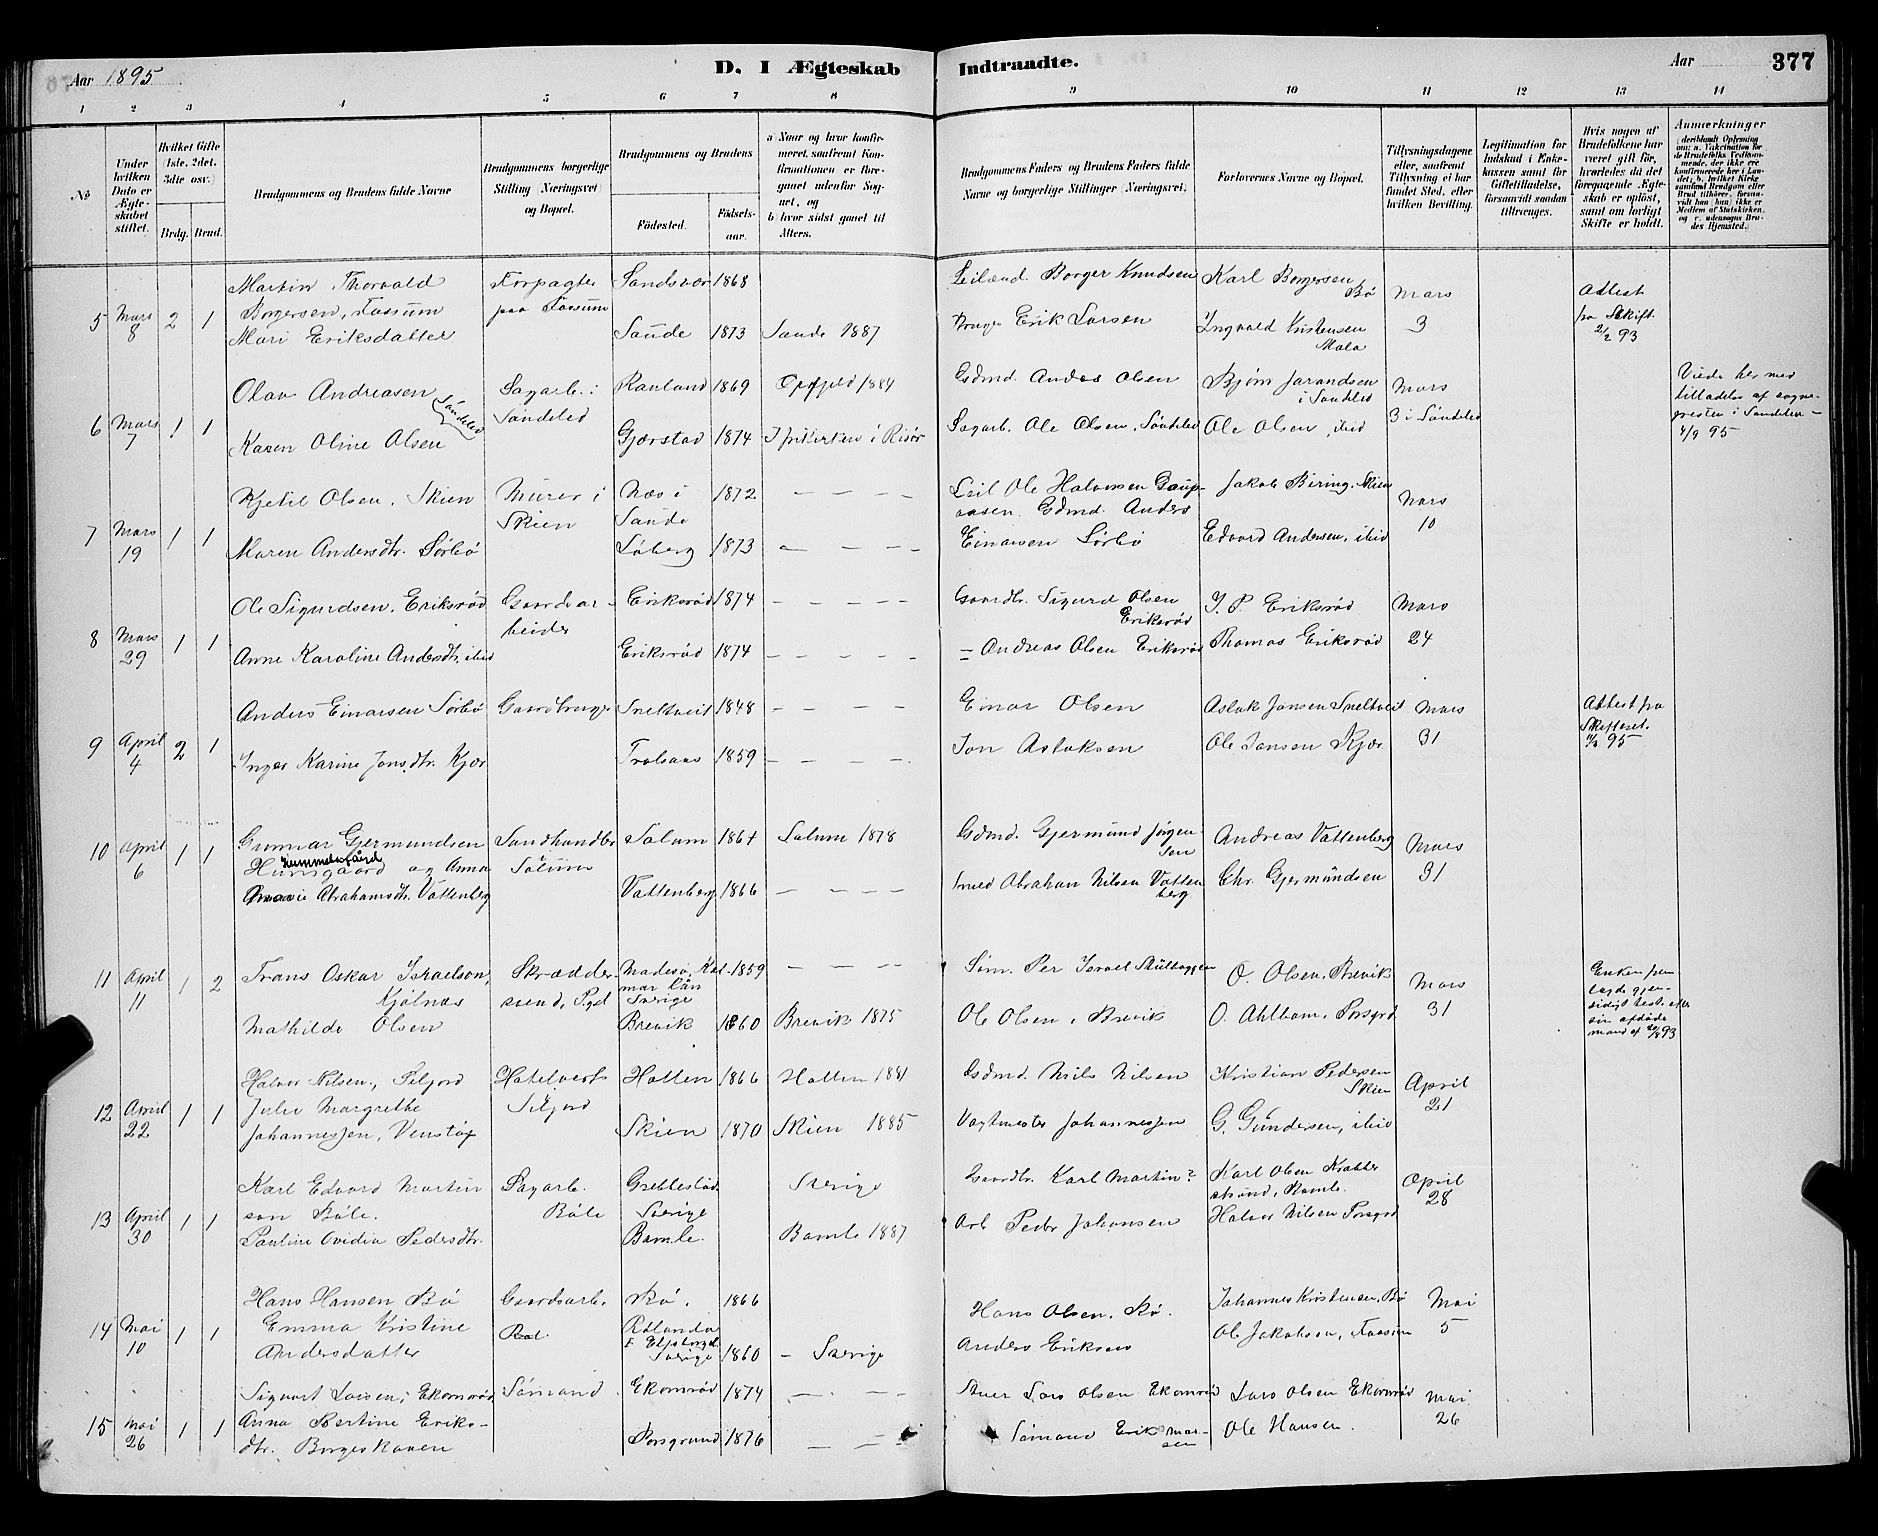 Aar 1895
D. I Ægteskab Indtraadte.
Aar 377
1 2 3 4 5 6 7 8 9 10 11 12 13 14
No
Under hvilken Dato er Ægteskabet stiftet.
Hvilket Gifte (1ste, 2det, 3die osv.)
Brdg. Brud.
Brudgommens og Brudens fulde Navne
Brudgommens borgerlige Stilling (Næringsvei) og Bopæl.
Brudgommens og Brudens
Födested.
Födselsaar.
a) Naar og hvor konfirmeret, saafremt Konfirmationen er foregaaet udenfor Sognet, og
b) hvor sidst gaaet til Alters.
Brudgommens Faders og Brudens Faders fulde Navne og borgerlige Stillinger (Næringsvei).
Forlovernes Navne og Bopæl.
Tillysningsdagene eller, saafremt Tillysning ei har fundet Sted, efter hvilken Bevilling.
Legitimation for Indskud i Enkekassen samt for Giftetilladelse, forsaavidt saadan tiltrænges.
Hvis nogen af Brudefolkene har været gift för, hvorledes da det foregaaende Ægteskab er oplöst, samt om lovligt Skifte er holdt.
Anmærkninger
(deriblandt Oplysning om: a. Vakcination for de Brudefolks Vedkommende, der ikke ere konfirmerede her i Landet; b. hvilket Kirkesamfund Brudgom eller Brud tilhörer, forsaavidt han (hun) ikke er Medlem af Statskirken, og c. udensogns Brudes Hjemsted.)
5 Mars 8 2 1
Martin Thorvald Borgersen, Fossum
Forpagter paa Fossum
Sandsvær 1868
Leilænd. Borger Knudsen
Karl Borgersen Bö
Mars 3
Attest fra Skift. 2/2 93
Mari Eriksdatter
Saude 1873
Saude 1887
Bruger Erik Larsen
Ingvald Kristensen
6 Mars 7 1 1
Olav Andreasen
Sagarb. i Söndeled
Rauland 1869
1884
Gdmd. Andres Olsen
Bjørn Jarandsen i Sandeled
Mars 3 i Søndeled
Viede her med tilladelse af sognepresten i Søndeled 4/3 95
Karen Oline Olsen Söndeled
Gjerstad 1874
i Risør
Sagarb. Ole Olsen, Søndeled
Ole Olsen, ibid
7 Mars 19 1 1
Kjetil Olsen, Skien
Murer i Skien
Næs i Saude 1872
— — — —
Leil Ole Halvorsen Gaupaasen
Jakob Biring, Skien
Mars 10
Maren Andersdtr. Sørbø
Løberg 1873
— — — —
Gdmd. Anders Einarsen Sørbø
Edvard Andersen, ibid
8 Mars 29 1 1
Ole Sigurdsen, Eriksrød
Gaardarbeider
Eriksrød 1874
— — — —
Gaardbr. Sigurd Olsen Eriksrød
J. P. Eriksrød
Mars 24
Anne Karoline Andersdtr. ibid
Eriksrød 1874
— — — —
= Andreas Olsen Eriksrød
Thomas Eriksrød
9 April 4 2 1
Anders Einarsen Sørbø
Gaardbruger
Sneltveit 1848
— — — —
Einar Olsen
Aslak Jansen Sneltveit
Mars 31
Attest fra Skifteret. 95
Inger Karine Jonsdtr. Kjær
1859
— — — —
Jon Aslaksen
Ole Jansen Kjær
10 April 6 1 1
Gunnar Gjermundsen Hummelsgård
Sandhandler Solum
Solum 1864
Solum 1878
Gdmd. Gjermund Jørgensen
Andreas Vattenberg
Mars 31
og Anna Marie Abrahamsdtr. Vattenberg
Vattenberg 1866
— — — —
Smed Abraham Nilsen Vattenberg
Chr. Gjermundsen
11 April 11 1 2
Frans Oskar Israelson, Kjølnæs
Skræddersvend, Pgd
Madesø, Kalmar län Sverige 1859
— — — —
Søm. Per Israel
O. Olsen, Brevik
Mars 31
Enken fremlagde gjensidigt test. efter sin afdøde mand af 93
Mathilde Olsen
Brevik 1860
Brevik 1875
Ole Olsen, Brevik
O. Ahlbom, Porsgrd
12 April 22 1 1
Halvor Nilsen, Siljord
Hotelvert Siljord
Holten 1866
Holten 1881
Gdmd. Nils Nilsen
Kristian Pedersen Skien
April 21
Julie Margrethe Johannessen, Venstøp
Skien 1870
Skien 1885
Vagtmester Johannessen
G. Gundersen, ibid
13 April 30 1 1
Karl Edvard Martinson Böle.
Sagarb. Böle
Grebbestad Sverige
Sverige
Gaardbr. Karl Martin?
Karl Olsen Krabberstrand, Bamle.
April 28
Pauline Ovidia Pedersdtr.
Bamle.
Bamle 1887
Arb Peder Johansen
Halvor Nilsen Porsgrd
14 Mai 10 1 1
Hans Hansen Bö
Gaardsarb.
Bö. 1866
Hans Olsen, Bö.
Johannes Kristensen, Bö
Mai 5
Emma Kristine Andersdatter
Rölanda Elfsborgsl. Sverige 1860
— Sverige
Anders Eriksen
Ole Jakobsen, Fossum
15 Mai 26 1 1
Sigvart Larsen, Ekornrød
Sømand
Ekornrød 1874
— — —
Lars Olsen Ekornrød
Lars Olsen Ekornrød
Mai 26
Anna Bertine Eriksdtr. Borgeskaven
Porsgrund 1876
— — —
Sømand Erik
Ole Hansen.